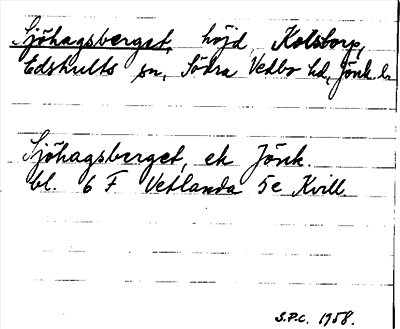 Sjöhagsberget, höjd, Kolstorp,
Edshults sn, Södra Vedbo hd, Jönk. l.
Sjöhagsberget, ek Jönk.
bl. 6 F Vetlanda 5e Kvill
S.P.C. 1958.